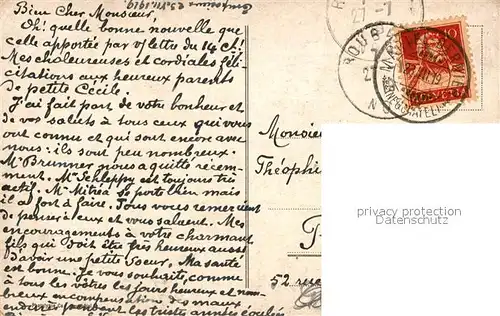 Bien Cher Monsieur,
Oh! quelle bonne nouvelle que
celle apportée par v/ lettre du 14 ct!
Mes chaleureuses et cordiales féli-
citations aux heureux parents
de petite Cécile.
J'ai fait part de votre bonheur et
de vos saluts à tous ceux qui vous
ont connu et qui sont encore avec
nous: ils sont peu nombreux.
Mr Brunner nous a quitté récem-
ment. Mr Schleppy est toujours très
actif. Mr se porte bien mais
il a fort à faire. Tous vous remercient
de penser à eux et vous saluent. Mes
encouragements à votre charmant
fils qui doit être très heureux aussi
d'avoir une petite soeur. Ma santé
est bonne. Je vous souhaite, comme
à tous les vôtres les jours heureux et nom-
breux en compensation des maux
endurés pendant les tristes années écoulées
Monsieur
Théophi
52 rue
phototypic Database
www.